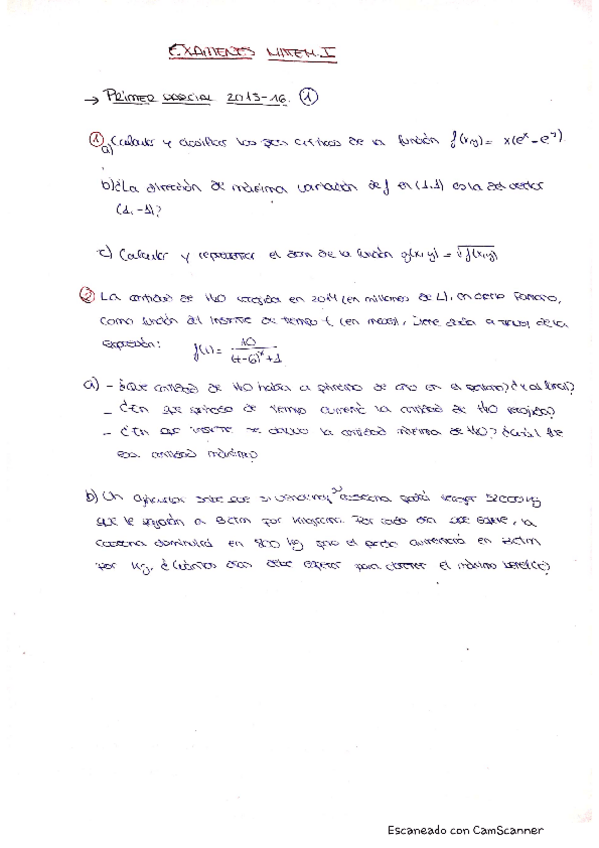 EXAMENES MATEM. I
→ PRIMER PARCIAL 2015-16. ①
① a) Calcular y clasificar los ptos críticos de la función f(x,y) = x(eˣ - eʸ)
b) ¿La dirección de máxima variación de f en (1,1) es la del vector
(1,-1)?
c) Calcular y representar el dom de la función g(x,y) = √f(x,y)
② La cantidad de H₂O recogida en 2014 (en millones de L), en cierto pantano,
como función del instante de tiempo t (en meses), viene dada a través de la
expresión: f(t) = 10 / (t-6)² + 1
a) - ¿Qué cantidad de H₂O había a principio de año en el pantano? ¿Y al final?
- ¿En qué periodo de tiempo aumentó la cantidad de H₂O recogida?
- ¿En qué instante se obtuvo la cantidad máxima de H₂O? ¿Cuál fue
esa cantidad máxima?
b) Un agricultor sabe que si vende hoy su cosecha podrá recoger
que le pagarán a por kilogramo. Por cada día que espere, la
cosecha disminuirá en 800 kg pero el precio aumentará en
por kg. ¿Cuántos días debe esperar para obtener el máximo beneficio?
Escaneado con CamScanner